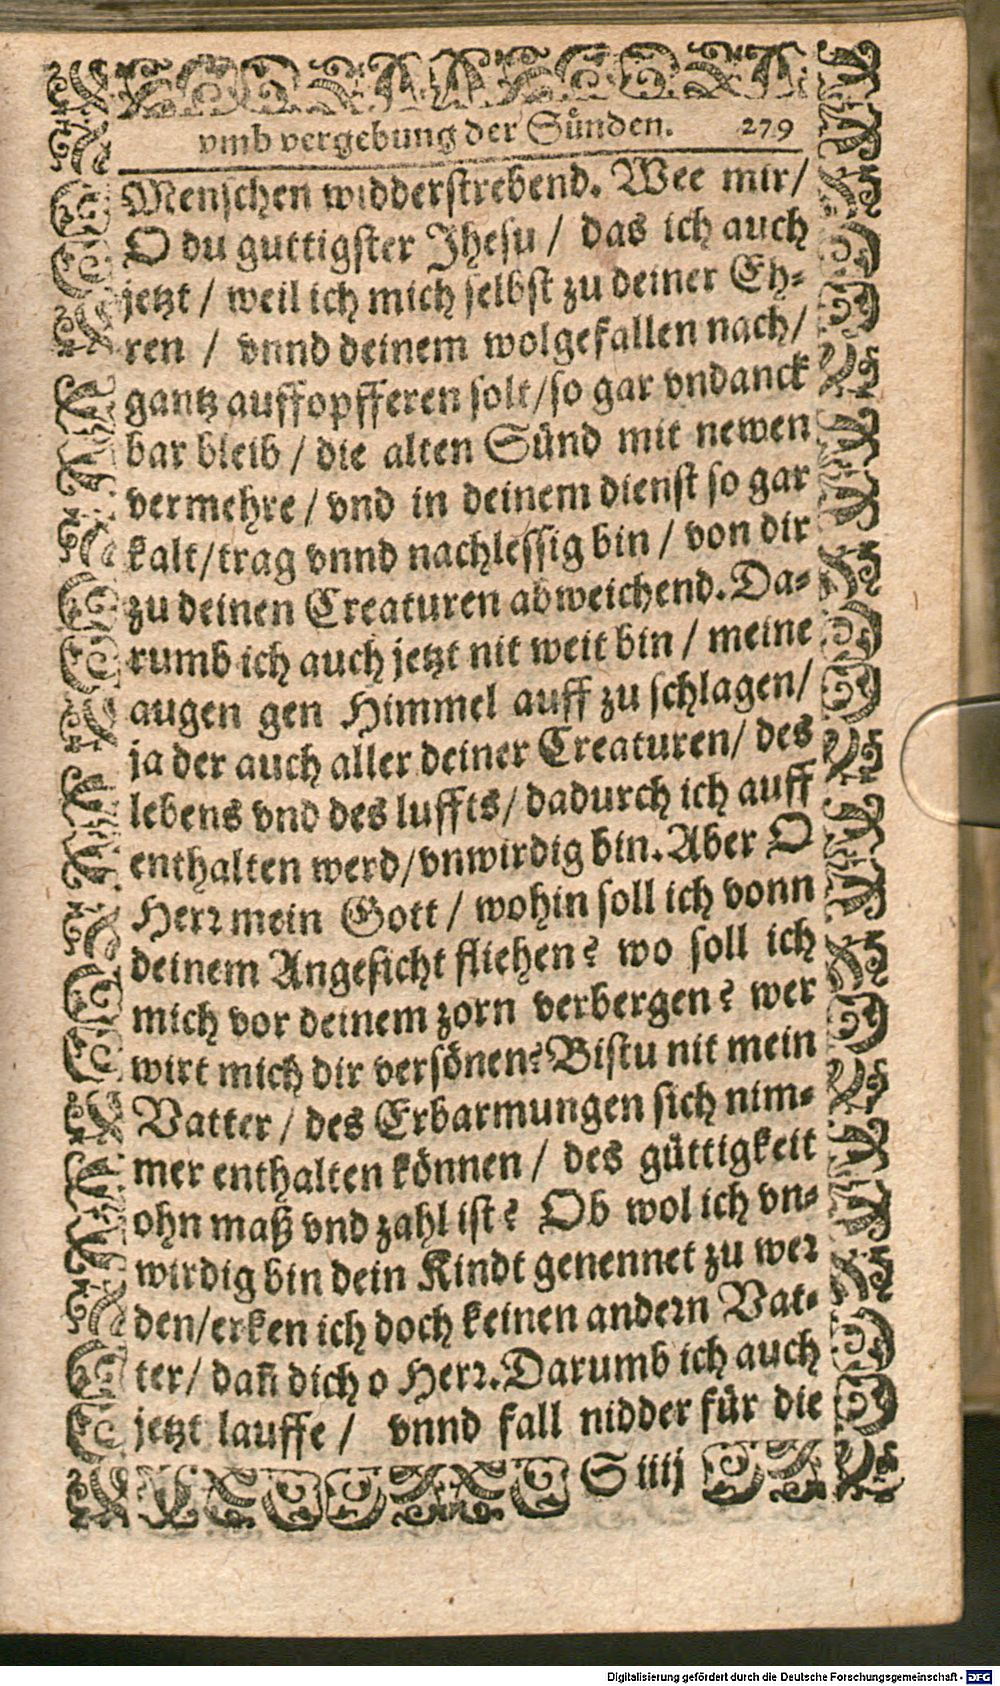 vmb vergebung der Sünden. 279
Menschen widderstrebend. Wee mir/
O du guttigster Jhesu / das ich auch
jetzt / weil ich mich selbst zu deiner Eh-
ren / vnnd deinem wolgefallen nach/
gantz auffopfferen solt/so gar vndanck
bar bleib / die alten Sünd mit newen
vermehre / vnd in deinem dienst so gar
kalt/trag vnnd nachlessig bin / von dir
zu deinen Creaturen abweichend. Da-
rumb ich auch jetzt nit weit bin / meine
augen gen Himmel auff zu schlagen/
ja der auch aller deiner Creaturen/ des
lebens vnd des luffts/ dadurch ich auff
enthalten werd/vnwirdig bin. Aber O
Herr mein Gott / wohin soll ich vonn
deinem Angesicht fliehen? wo soll ich
mich vor deinem zorn verbergen? wer
wirt mich dir versönen? Bistu nit mein
Vatter / des Erbarmungen sich nim-
mer enthalten können / des güttigkeit
ohn maß vnd zahl ist? Ob wol ich vn-
wirdig bin dein Kindt genennet zu wer
den/erken ich doch keinen andern Vat-
ter/ dañ dich o Herr. Darumb ich auch
jetzt lauffe / vnnd fall nidder für die
S iiij
Digitalisierung gefördert durch die Deutsche Forschungsgemeinschaft - DFG